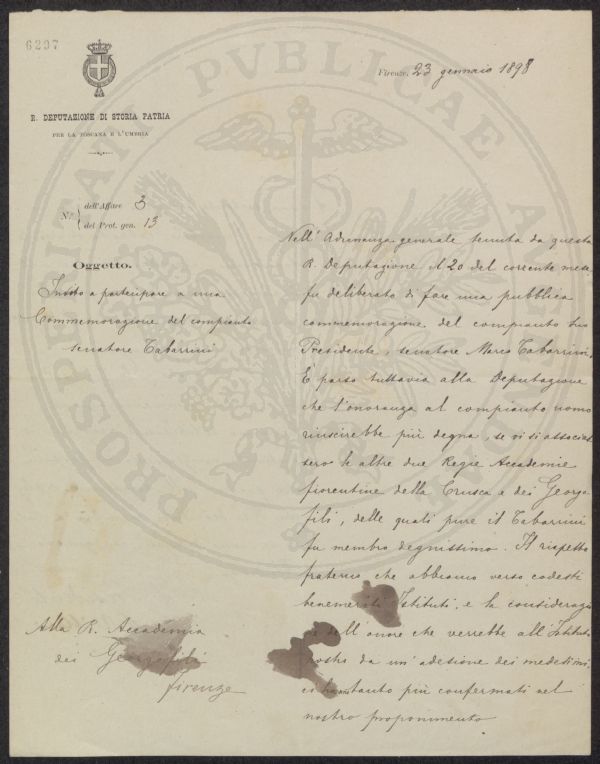 6297
Firenze, 23 gennaio 1898
R. DEPUTAZIONE DI STORIA PATRIA
PER LA TOSCANA E L'UMBRIA
N.° dell'Affare 3
del Prot. gen. 13
Oggetto.
Invito a partecipare a una
Commemorazione del compianto
senatore Tabarrini
Nell'Adunanza generale tenuta da questa
R. Deputazione il 20 del corrente mese
fu deliberato di fare una pubblica
commemorazione del compianto suo
Presidente, senatore Marco Tabarrini.
È parso tuttavia alla Deputazione
che l'onoranza al compianto uomo
riuscirebbe più degna, se vi si associas
sero le altre due Regie Accademie
fiorentine della Crusca e dei Georgo
fili, delle quali pure il Tabarrini
fu membro degnissimo. Il rispetto
fraterno che abbiamo verso codesti
benemeriti Istituti, e la considerazio
ne dell'onore che verrebbe all'Istituto
nostro da un'adesione dei medesimi,
ci hanno tanto più confermati nel
nostro proponimento
Alla R. Accademia
dei Georgofili
Firenze
PROSPERITATI PVBLICAE AVGENDAE